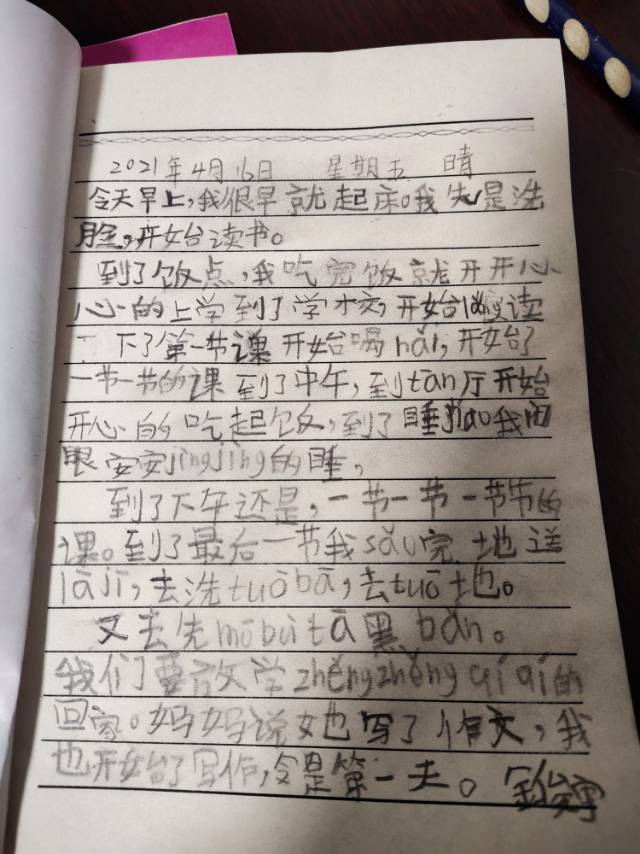 2021年4月16日 星期五 晴
今天早上,我很早就起床。我先是洗
脸,开始读书。
到了饭点,我吃完饭就开开心
心的上学到了学校,开始读
下了第一节课开始喝nǎi,开始了
一节一节的课到了中午,到tān厅开始
开心的吃起饭,到了睡jiào我闭
眼安安jìngjìng的睡,
到了下午还是,一节一节一节节的
课。到了最后一节我sǎo完地送
lājī,去洗tuōbǎ,去tuō地。
又去先mōbùtā黑bǎn。
我们要放学zhěngzhěng qíqí的
回家。妈妈说她也写了作文,我
也开始了写作,令是第一夫。